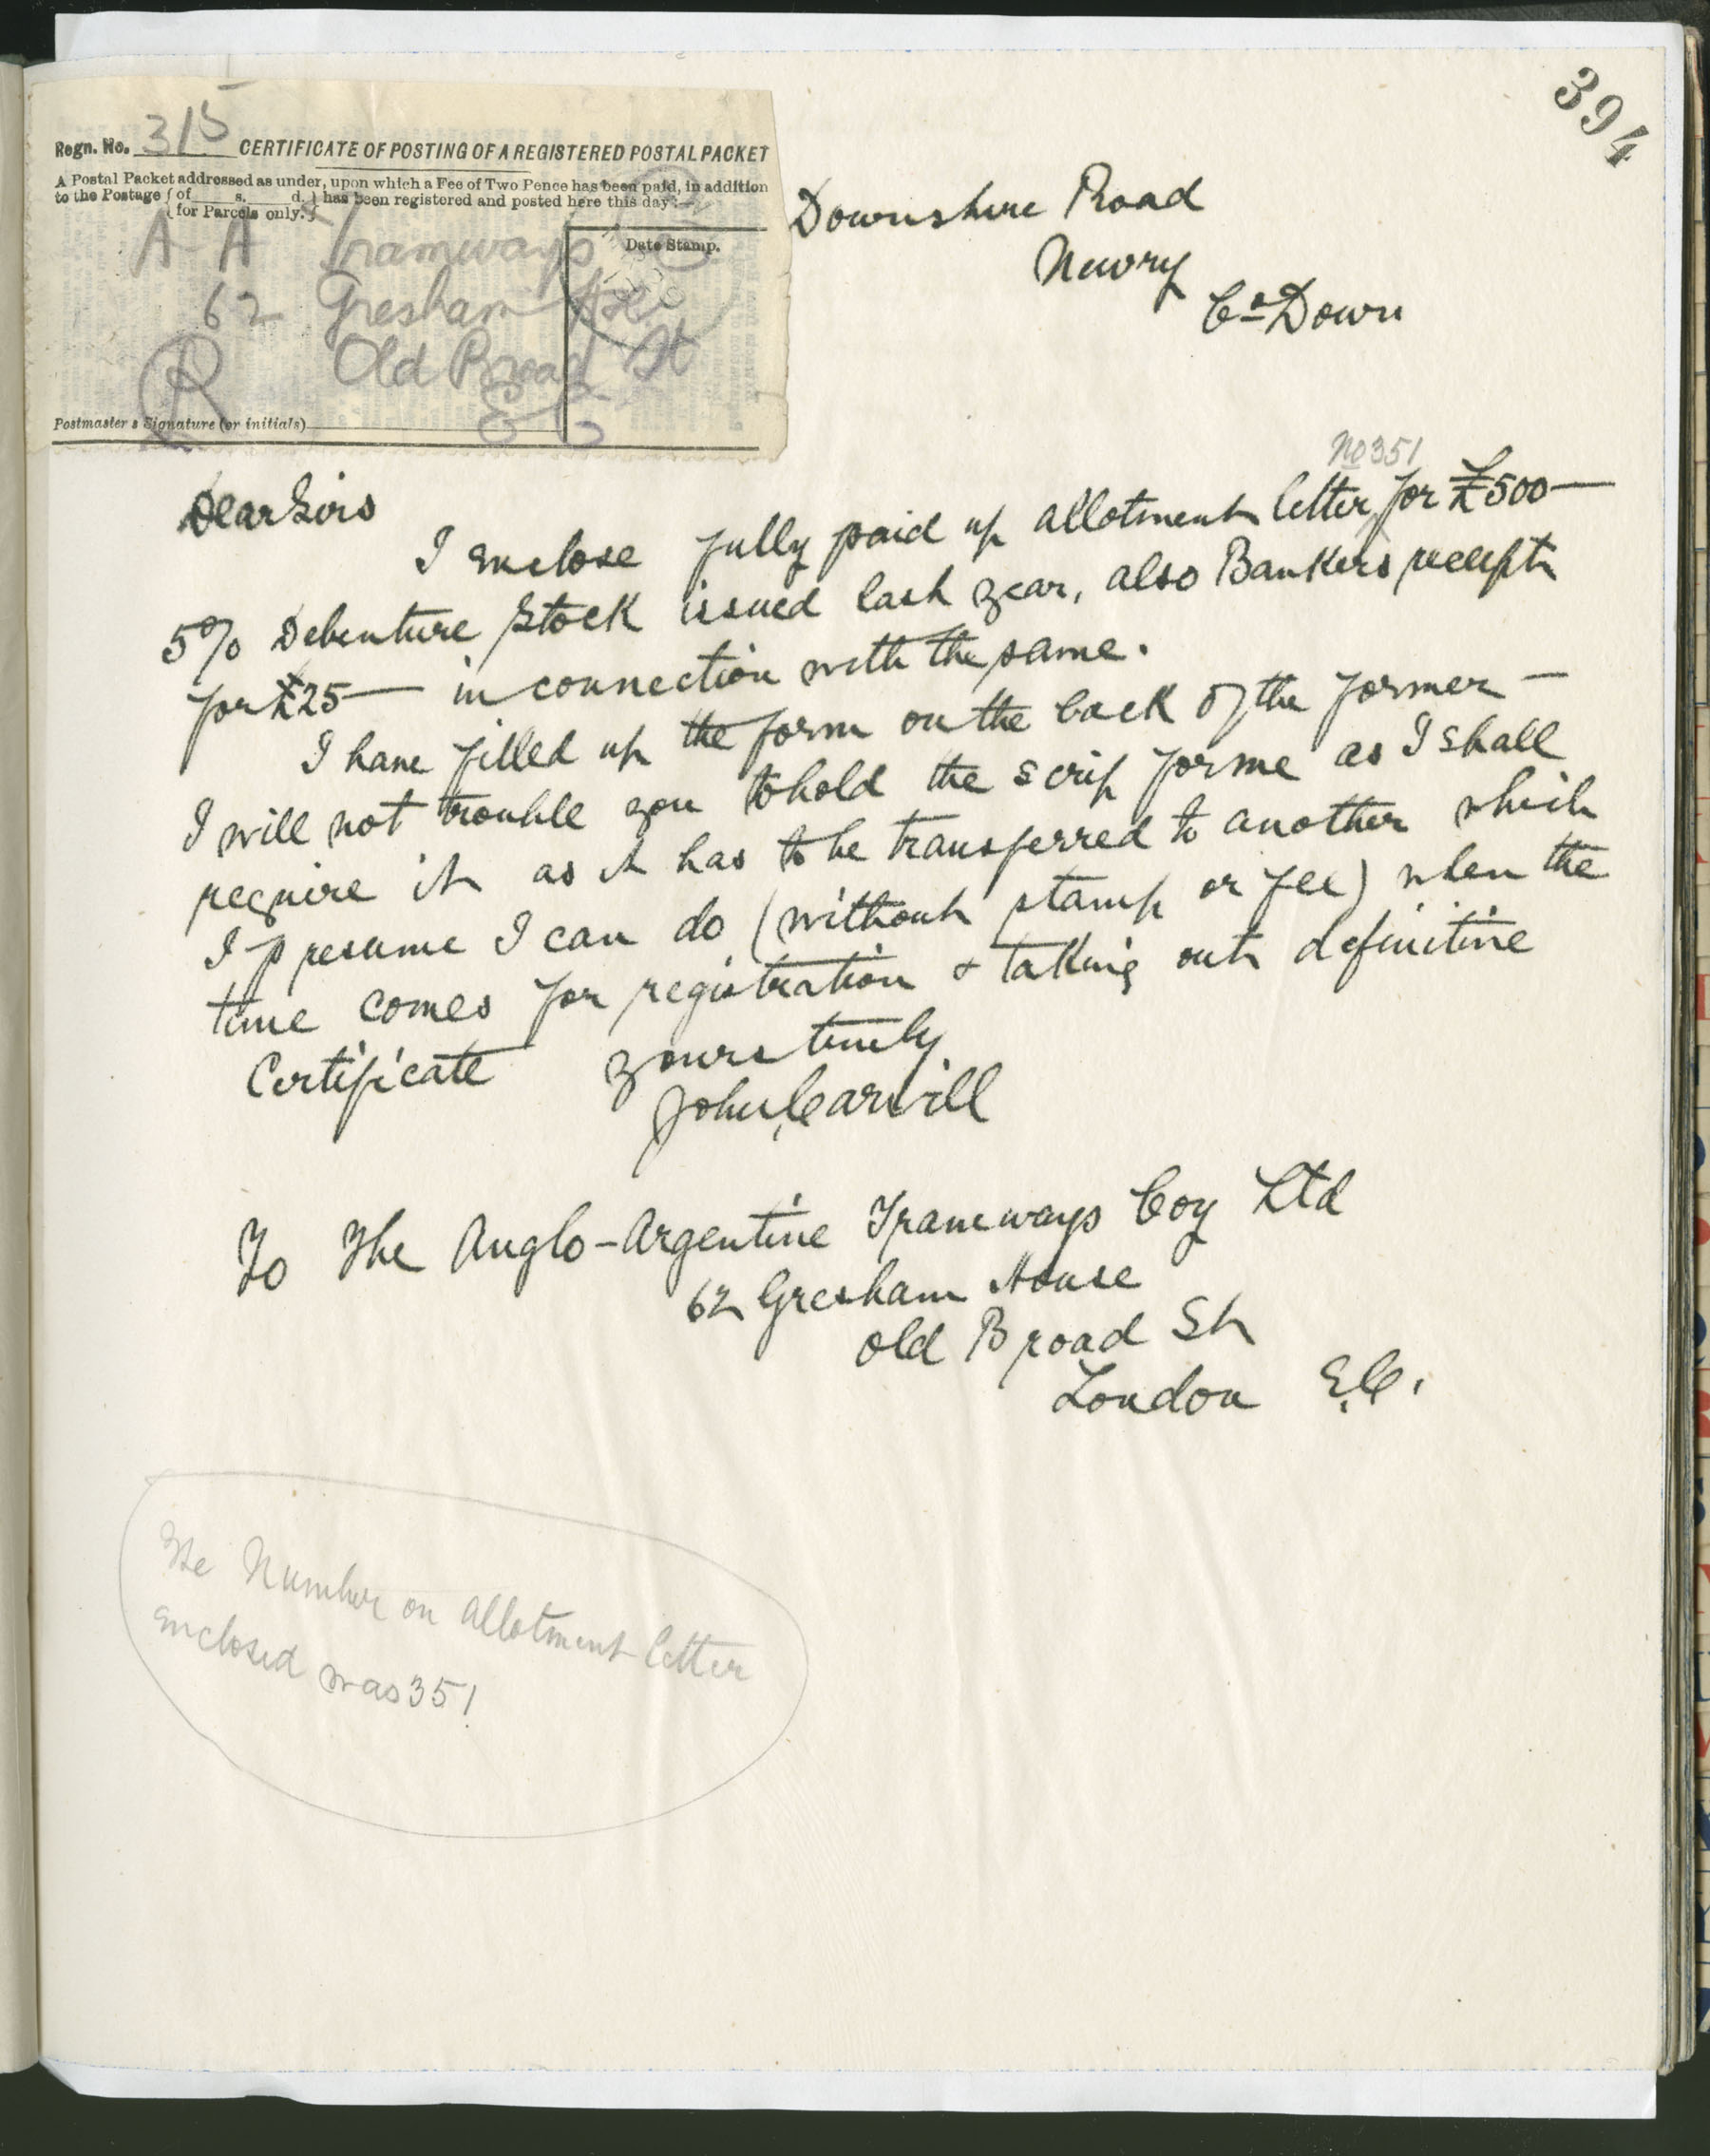 394
Regn. No. 315 CERTIFICATE OF POSTING OF A REGISTERED POSTAL PACKET
A Postal Packet addressed as under, upon which a Fee of Two Pence has been paid, in addition
to the Postage { of s. d. } has been registered and posted here this day:—
{ for Parcels only. }
Date Stamp.
A A Tramways
62 Gresham Hse
Old Broad St
R
E C
Postmaster's Signature (or initials)
Downshire Road
Newry
Co Down
Dear Sirs
No 351
I enclose fully paid up allotment letter for £500—
5% Debenture Stock issued last year, also Bankers receipt
for £25— in connection with the same.
I have filled up the form on the back of the former —
I will not trouble you to hold the scrip for me as I shall
require it as it has to be transferred to another which
I presume I can do (without stamp or fee) when the
time comes for registration & taking out definitive
Certificate yours truly
John Carvill
To The Anglo-Argentine Tramways Coy Ltd
62 Gresham House
Old Broad St
London E.C.
The Number on allotment letter
enclosed was 351